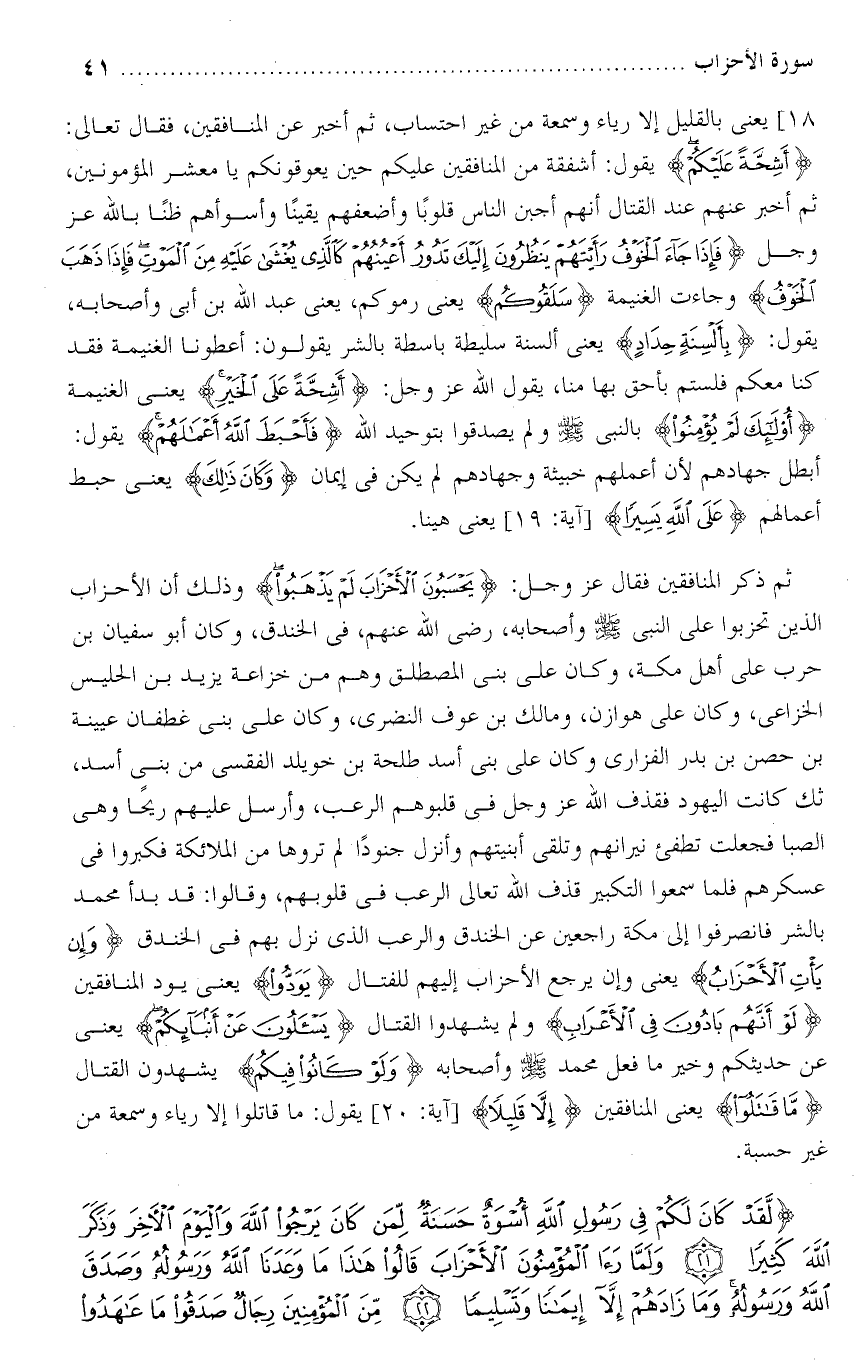 سورة الأحزاب ........................................................................ ٤١
١٨] يعنى بالقليل إلا رياء وسمعة من غير احتساب، ثم أخبر عن المنـافقين، فقـال تعـالى:
﴿أَشِحَّةً عَلَيْكُمْ﴾ يقول: أشفقة من المنافقين عليكم حين يعوقونكم يا معشـر المؤمونـين،
ثم أخبر عنهم عند القتال أنهم أجبن الناس قلوبًا وأضعفهم يقينًا وأسـوأهم ظنًـا بـالله عـز
وجـل ﴿فَإِذَا جَآءَ ٱلْخَوْفُ رَأَيْتَهُمْ يَنظُرُونَ إِلَيْكَ تَدُورُ أَعْيُنُهُمْ كَٱلَّذِى يُغْشَىٰ عَلَيْهِ مِنَ ٱلْمَوْتِۖ فَإِذَا ذَهَبَ
ٱلْخَوْفُ﴾ وجاءت الغنيمة ﴿سَلَقُوكُم﴾ يعنى رموكم، يعنى عبد الله بن أبى وأصحابـه،
يقول: ﴿بِأَلْسِنَةٍ حِدَادٍ﴾ يعنى ألسنة سليطة باسطة بالشر يقولـون: أعطونـا الغنيمـة فقـد
كنا معكم فلستم بأحق بها منا، يقول الله عز وجل: ﴿أَشِحَّةً عَلَى ٱلْخَيْرِۚ﴾ يعنـى الغنيمـة
﴿أُو۟لَـٰٓئِكَ لَمْ يُؤْمِنُوا۟﴾ بالنبى ﷺ ولم يصدقوا بتوحيد الله ﴿فَأَحْبَطَ ٱللَّهُ أَعْمَـٰلَهُمْۚ﴾ يقول:
أبطل جهادهم لأن أعملهم خبيثة وجهادهم لم يكن فى إيمان ﴿وَكَانَ ذَٰلِكَ﴾ يعنـى حبـط
أعمالهم ﴿عَلَى ٱللَّهِ يَسِيرًا﴾ [آية: ١٩] يعنى هينا.
ثم ذكر المنافقين فقال عز وجـل: ﴿يَحْسَبُونَ ٱلْأَحْزَابَ لَمْ يَذْهَبُوا۟ۖ﴾ وذلـك أن الأحـزاب
الذين تحزبوا على النبى ﷺ وأصحابه، رضى الله عنهم، فى الخندق، وكان أبو سفيان بن
حرب على أهل مكـة، وكـان علـى بنـى المصطلـق وهـم مـن خزاعـة يزيـد بـن الحليـس
الخزاعى، وكان على هوازن، ومالك بن عوف النضرى، وكان علـى بنـى غطفـان عيينـة
بن حصن بن بدر الفزارى وكان على بنى أسد طلحة بن خويلد الفقسى من بنـى أسـد،
ثك كانت اليهود فقذف الله عز وجل فـى قلوبهـم الرعـب، وأرسـل عليـهم ريحًـا وهـى
الصبا فجعلت تطفئ نيرانهم وتلقى أبنيتهم وأنزل جنودًا لم تروها من الملائكة فكبروا فى
عسكرهم فلما سمعوا التكبير قذف الله تعالى الرعب فـى قلوبـهم، وقـالوا: قـد بـدأ محمـد
بالشر فانصرفوا إلى مكة راجعين عن الخندق والرعب الذى نزل بهم فـى الخنـدق ﴿وَإِن
يَأْتِ ٱلْأَحْزَابُ﴾ يعنى وإن يرجع الأحزاب إليهم للفتـال ﴿يَوَدُّوا۟﴾ يعنـى يـود المنـافقين
﴿لَوْ أَنَّهُم بَادُونَ فِى ٱلْأَعْرَابِ﴾ ولم يشـهدوا القتـال ﴿يَسْـَٔلُونَ عَنْ أَنۢبَآئِكُمْۖ﴾ يعنـى
عن حديثكم وخير ما فعل محمد ﷺ وأصحابه ﴿وَلَوْ كَانُوا۟ فِيكُم﴾ يشهدون القتـال
﴿مَّا قَـٰتَلُوٓا۟﴾ يعنى المنافقين ﴿إِلَّا قَلِيلًا﴾ [آية: ٢٠] يقول: ما قاتلوا إلا رياء وسمعة من
غير حسبة.
﴿لَّقَدْ كَانَ لَكُمْ فِى رَسُولِ ٱللَّهِ أُسْوَةٌ حَسَنَةٌ لِّمَن كَانَ يَرْجُوا۟ ٱللَّهَ وَٱلْيَوْمَ ٱلْـَٔاخِرَ وَذَكَرَ
ٱللَّهَ كَثِيرًا ٢١ وَلَمَّا رَءَا ٱلْمُؤْمِنُونَ ٱلْأَحْزَابَ قَالُوا۟ هَـٰذَا مَا وَعَدَنَا ٱللَّهُ وَرَسُولُهُۥ وَصَدَقَ
ٱللَّهُ وَرَسُولُهُۥۚ وَمَا زَادَهُمْ إِلَّآ إِيمَـٰنًا وَتَسْلِيمًا ٢٢ مِّنَ ٱلْمُؤْمِنِينَ رِجَالٌ صَدَقُوا۟ مَا عَـٰهَدُوا۟